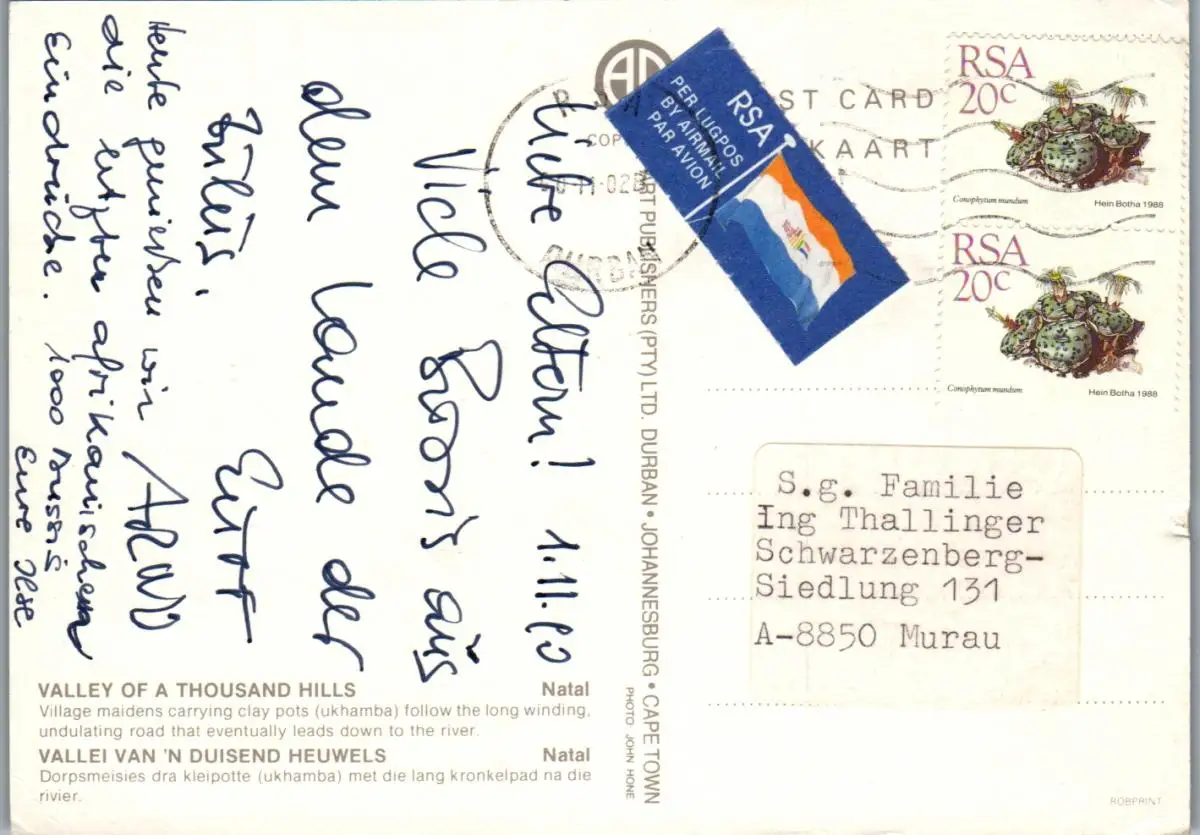 Liebe Eltern! 1.11.90
Viele Bussis aus
dem Lande der
Zulus.
Eure
ARNO
Heute genießen wir
die letzten afrikanischen
Eindrücke. 1000 Bussis
Eure Ilse
VALLEY OF A THOUSAND HILLS Natal
Village maidens carrying clay pots (ukhamba) follow the long winding,
undulating road that eventually leads down to the river.
VALLEI VAN 'N DUISEND HEUWELS Natal
Dorpsmeisies dra kleipotte (ukhamba) met die lang kronkelpad na die
rivier.
ART PUBLISHERS (PTY) LTD. DURBAN • JOHANNESBURG • CAPE TOWN
PHOTO: JOHN HONE
ST CARD
KAART
COP
RSA
PER LUGPOS
BY AIRMAIL
PAR AVION
RSA
20c
Conophytum mundum
Hein Botha 1988
RSA
20c
Conophytum mundum
Hein Botha 1988
S.g. Familie
Ing Thallinger
Schwarzenberg-
Siedlung 131
A-8850 Murau
ROBPRINT